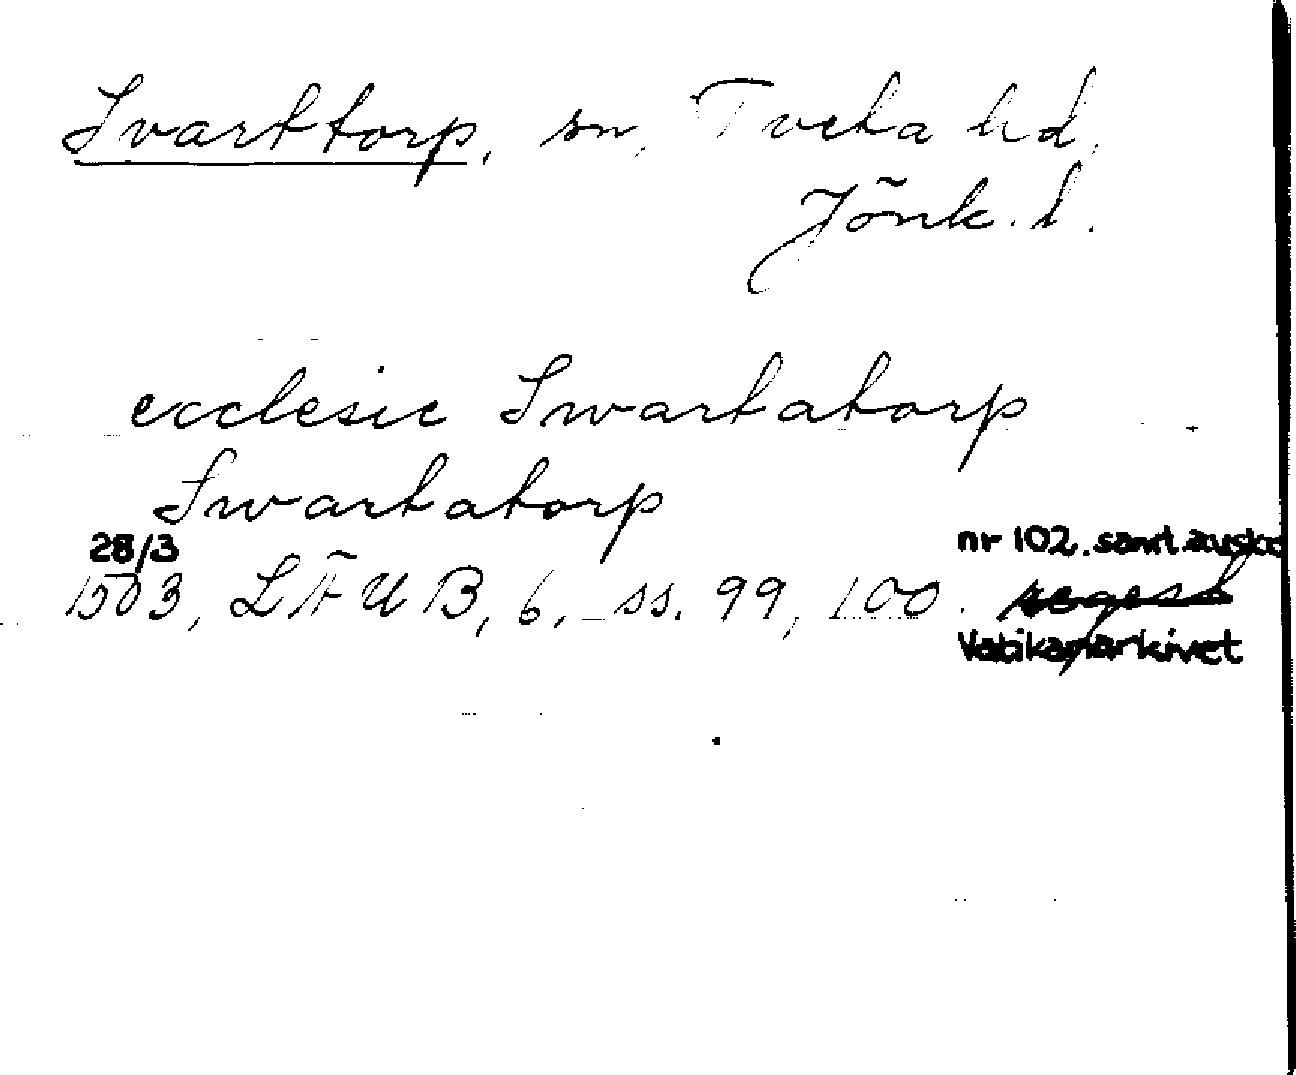 Svarttorp, sn, Tveta hd,
Jönk. l.
ecclesie Swartatorp
Swartatorp
28/3 nr 102. samt
1503, LÄUB, 6, ss. 99, 100. regest
Vatikanarkivet